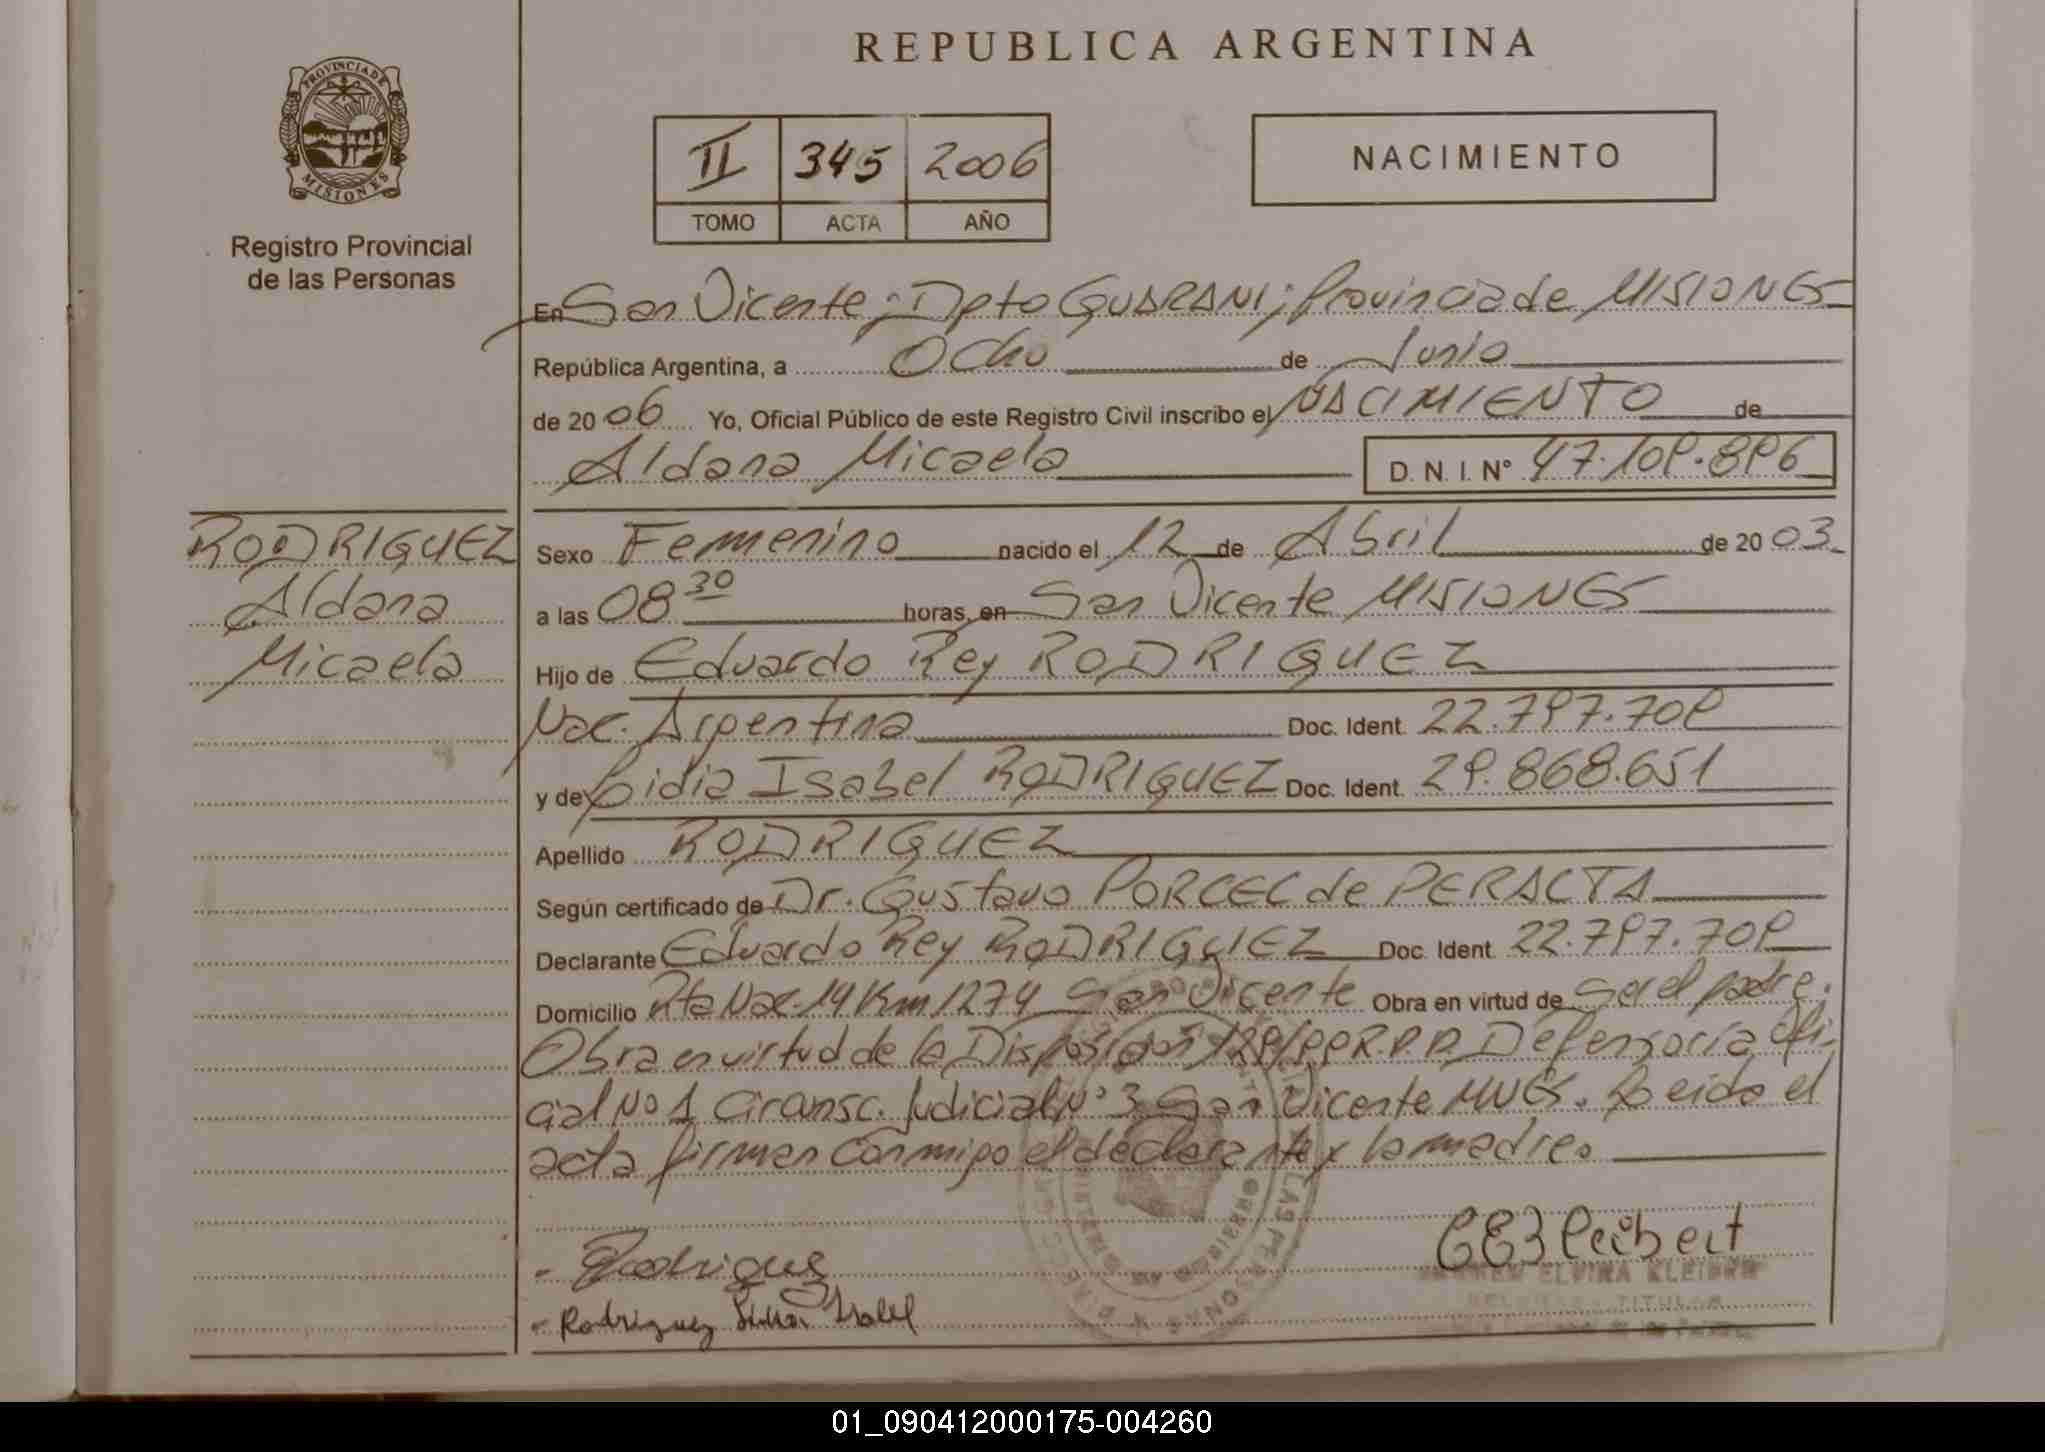 REPUBLICA ARGENTINA
PROVINCIA DE MISIONES
Registro Provincial
de las Personas
II 345 2006
TOMO ACTA AÑO
NACIMIENTO
En San Vicente; Dpto GUARANI; Provincia de MISIONES
República Argentina, a Ocho de Junio
de 20 06 Yo, Oficial Público de este Registro Civil inscribo el NACIMIENTO de
Aldana Micaela D. N. I. N° 47.109.896
RODRIGUEZ
Aldana
Micaela
Sexo Femenino nacido el 12 de Abril de 20 03
a las 08 30 horas, en San Vicente MISIONES
Hijo de Eduardo Rey RODRIGUEZ
Nac. Argentina Doc. Ident. 22.797.709
y de Lidia Isabel RODRIGUEZ Doc. Ident. 29.868.651
Apellido RODRIGUEZ
Según certificado de Dr. Gustavo PORCEL de PERALTA
Declarante Eduardo Rey RODRIGUEZ Doc. Ident. 22.797.709
Domicilio Rta Nac. 14 Km 1274 San Vicente Obra en virtud de Ser el padre.
Obra en virtud de la Disposición 129/99 R.P.P. Defensoría Ofi-
cial No 1 Circunsc. Judicial N° 3 San Vicente MNES. Leida el
acta firman conmigo el declarante y la madre.
- Rodriguez
- Rodriguez Isabel
ELVIRA
TITULAR
LAS PERSONAS
01_090412000175-004260